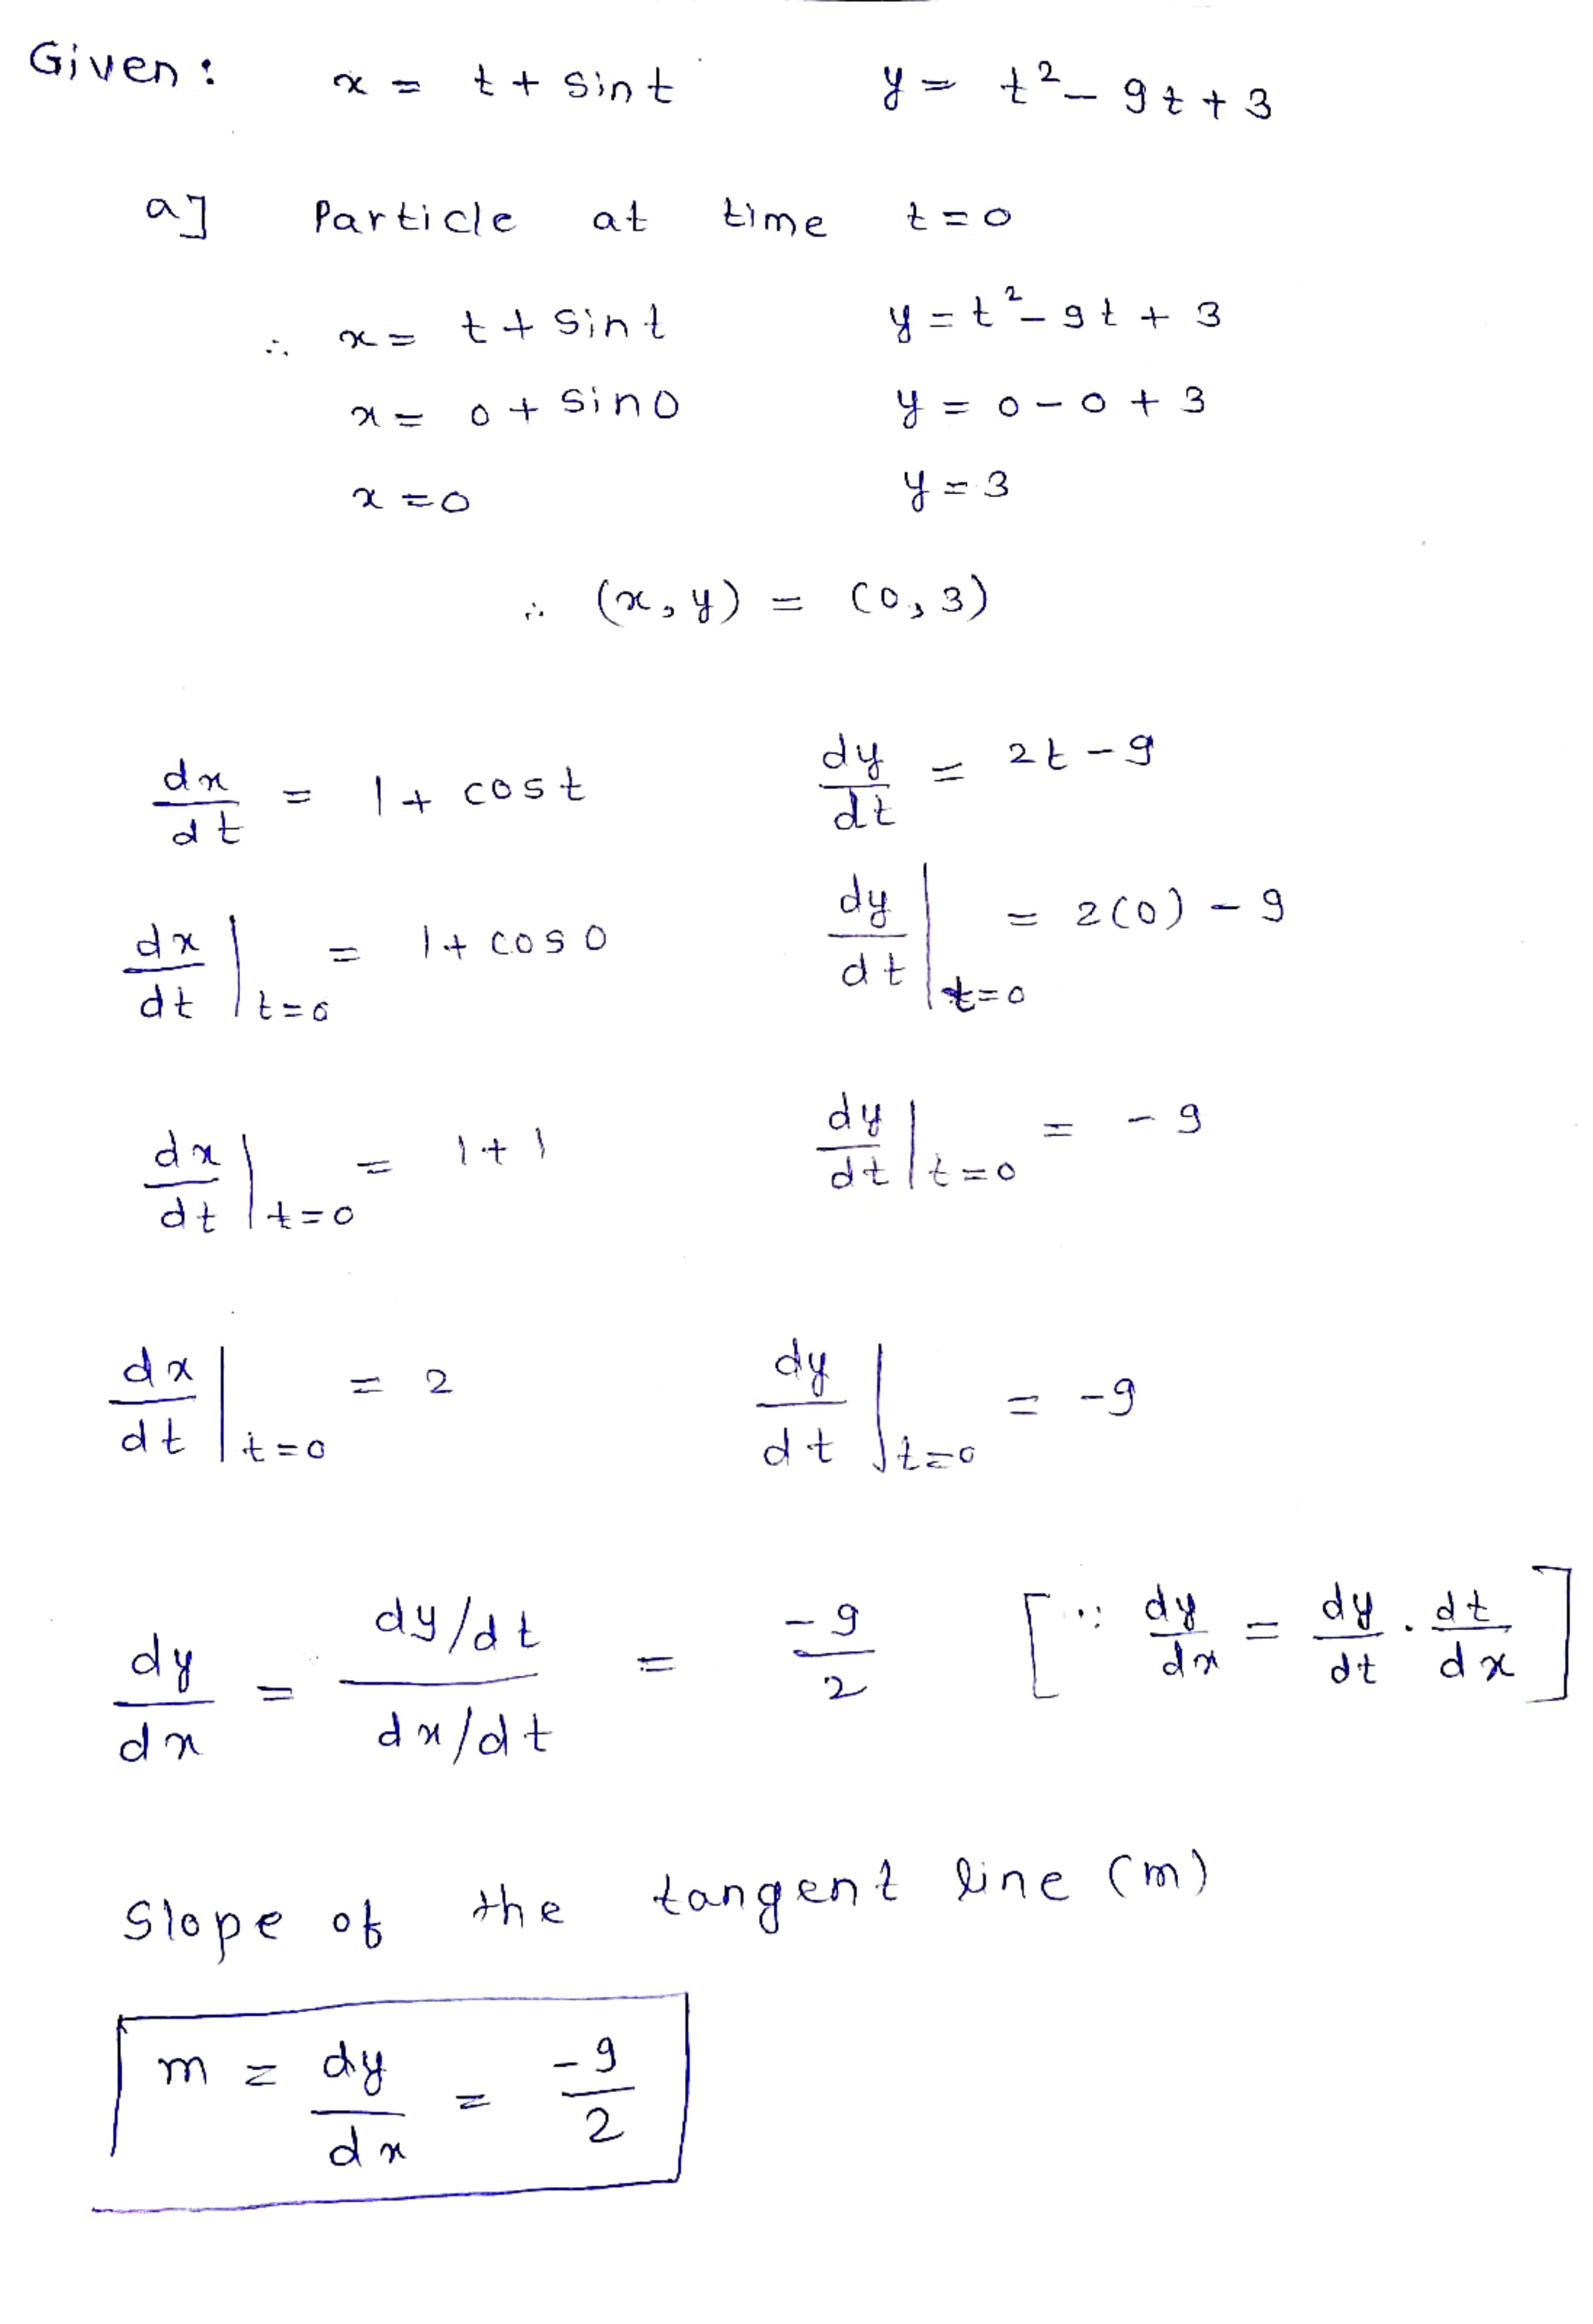 Given: x = t + sint y = t² - 9t + 3
a] Particle at time t=0
∴ x = t + sint y = t² - 9t + 3
x = 0 + sin0 y = 0 - 0 + 3
x = 0 y = 3
∴ (x, y) = (0, 3)
dx/dt = 1 + cost dy/dt = 2t - 9
dx/dt |t=0 = 1 + cos0 dy/dt |t=0 = 2(0) - 9
dx/dt |t=0 = 1+1 dy/dt |t=0 = -9
dx/dt |t=0 = 2 dy/dt |t=0 = -9
dy/dx = (dy/dt)/(dx/dt) = -9/2 [∵ dy/dx = dy/dt · dt/dx]
Slope of the tangent line (m)
m = dy/dx = -9/2